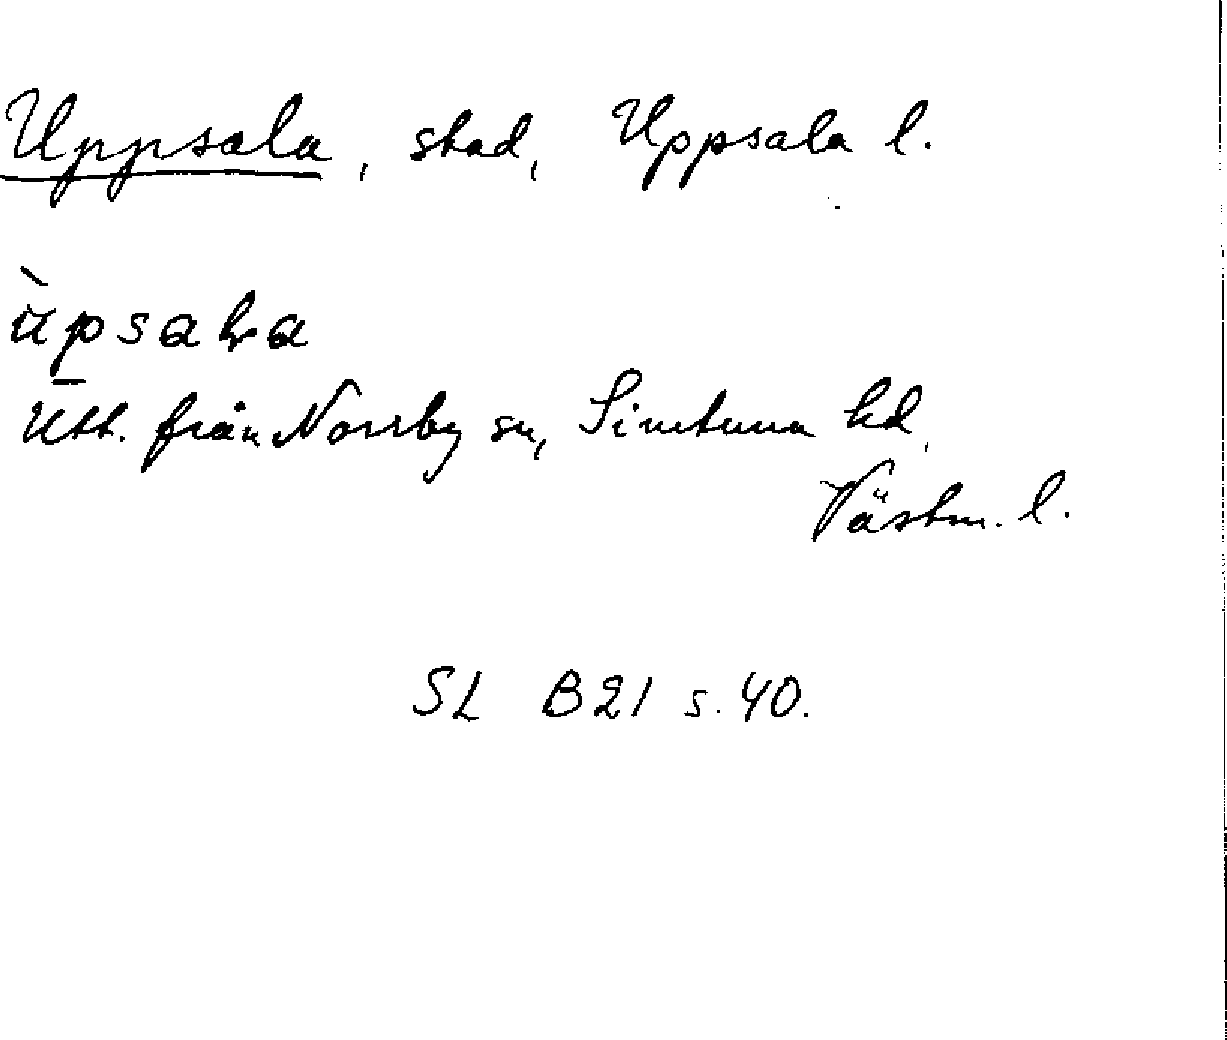 Uppsala, stad, Uppsala l.
ùpsala
Utt. från Norrby sn, Simtuna hd,
Västm. l.
SL B21 s. 40.